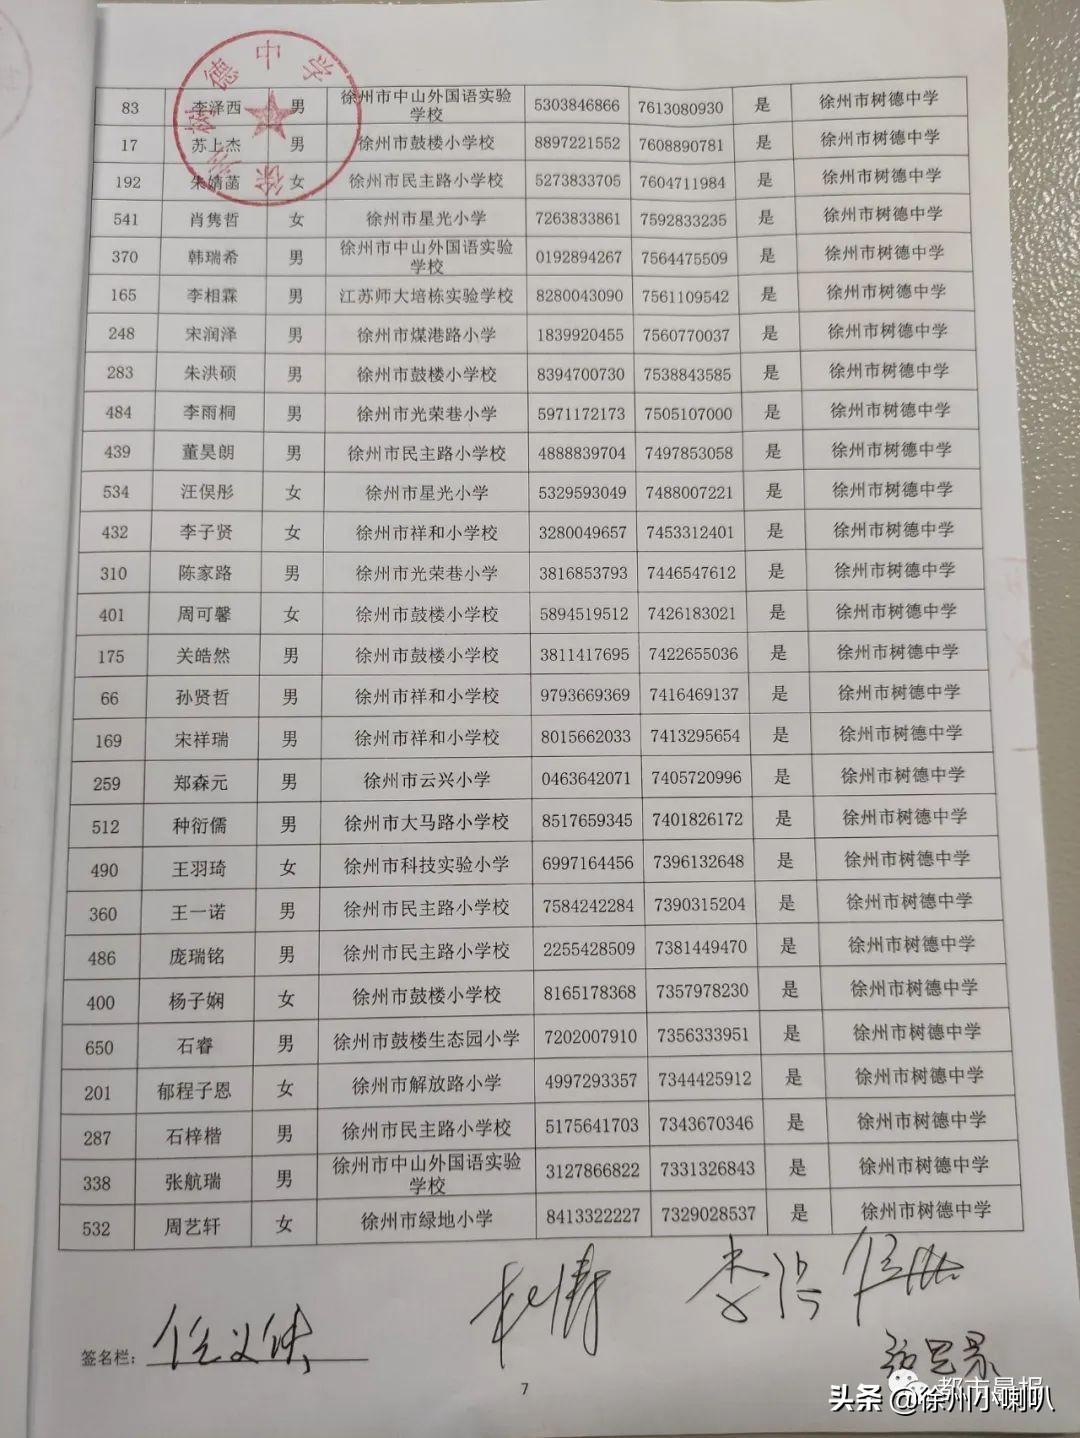 徐州市树德中学
83 李泽西 男 徐州市中山外国语实验学校 5303846866 7613080930 是 徐州市树德中学
17 苏上杰 男 徐州市鼓楼小学校 8897221552 7608890781 是 徐州市树德中学
192 朱婧菡 女 徐州市民主路小学校 5273833705 7604711984 是 徐州市树德中学
541 肖隽哲 女 徐州市星光小学 7263833861 7592833235 是 徐州市树德中学
370 韩瑞希 男 徐州市中山外国语实验学校 0192894267 7564475509 是 徐州市树德中学
165 李相霖 男 江苏师大培栋实验学校 8280043090 7561109542 是 徐州市树德中学
248 宋润泽 男 徐州市煤港路小学 1839920455 7560770037 是 徐州市树德中学
283 朱洪硕 男 徐州市鼓楼小学校 8394700730 7538843585 是 徐州市树德中学
484 李雨桐 男 徐州市光荣巷小学 5971172173 7505107000 是 徐州市树德中学
439 董昊朗 男 徐州市民主路小学校 4888839704 7497853058 是 徐州市树德中学
534 汪俣彤 女 徐州市星光小学 5329593049 7488007221 是 徐州市树德中学
432 李子贤 女 徐州市祥和小学校 3280049657 7453312401 是 徐州市树德中学
310 陈家路 男 徐州市光荣巷小学 3816853793 7446547612 是 徐州市树德中学
401 周可馨 女 徐州市鼓楼小学校 5894519512 7426183021 是 徐州市树德中学
175 关皓然 男 徐州市鼓楼小学校 3811417695 7422655036 是 徐州市树德中学
66 孙贤哲 男 徐州市祥和小学校 9793669369 7416469137 是 徐州市树德中学
169 宋祥瑞 男 徐州市祥和小学校 8015662033 7413295654 是 徐州市树德中学
259 郑森元 男 徐州市云兴小学 0463642071 7405720996 是 徐州市树德中学
512 种衍儒 男 徐州市大马路小学校 8517659345 7401826172 是 徐州市树德中学
490 王羽琦 女 徐州市科技实验小学 6997164456 7396132648 是 徐州市树德中学
360 王一诺 男 徐州市民主路小学校 7584242284 7390315204 是 徐州市树德中学
486 庞瑞铭 男 徐州市民主路小学校 2255428509 7381449470 是 徐州市树德中学
400 杨子娴 女 徐州市鼓楼小学校 8165178368 7357978230 是 徐州市树德中学
650 石睿 男 徐州市鼓楼生态园小学 7202007910 7356333951 是 徐州市树德中学
201 郁程子恩 女 徐州市解放路小学 4997293357 7344425912 是 徐州市树德中学
287 石梓楷 男 徐州市民主路小学校 5175641703 7343670346 是 徐州市树德中学
338 张航瑞 男 徐州市中山外国语实验学校 3127866822 7331326843 是 徐州市树德中学
532 周艺轩 女 徐州市绿地小学 8413322227 7329028537 是 徐州市树德中学
签名栏:
7
都市晨报
头条 @徐州小喇叭